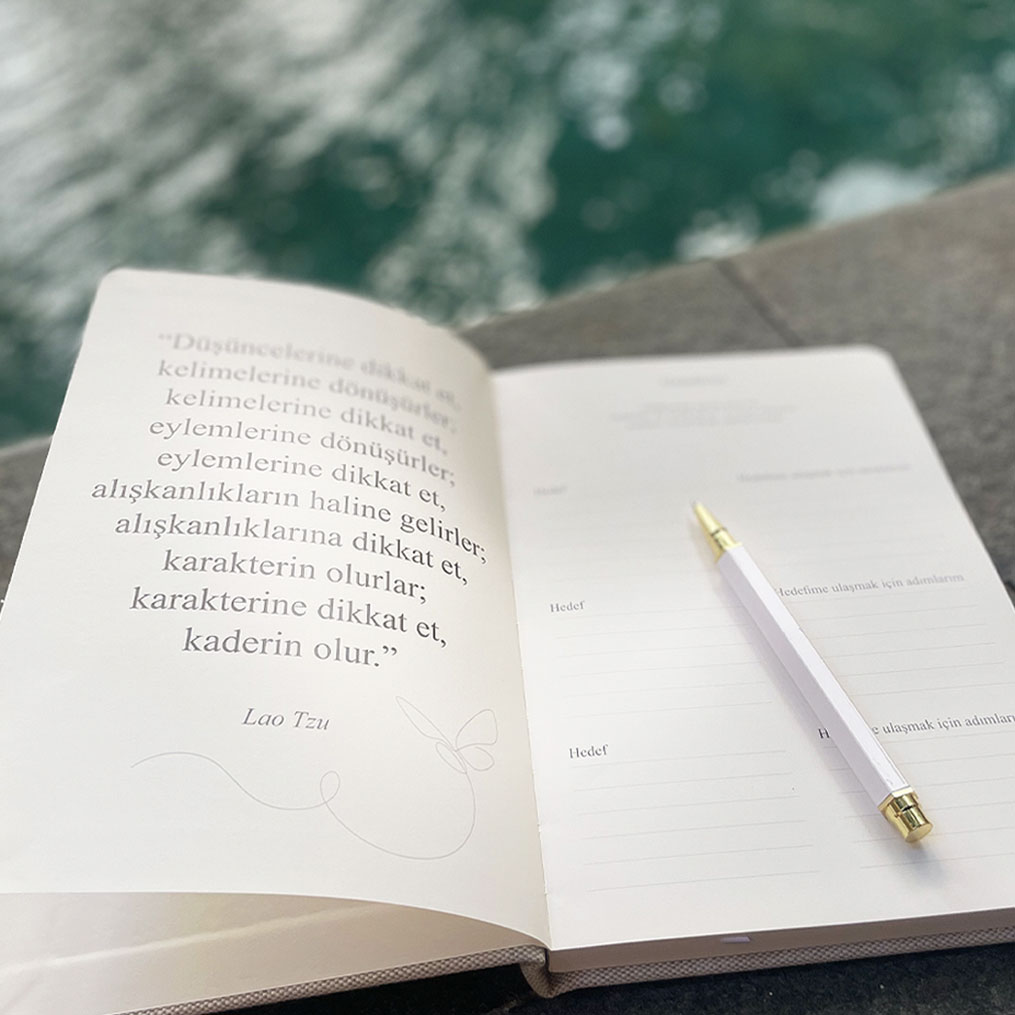 “Düşüncelerine dikkat et,
kelimelerine dönüşürler;
kelimelerine dikkat et,
eylemlerine dönüşürler;
eylemlerine dikkat et,
alışkanlıkların haline gelirler;
alışkanlıklarına dikkat et,
karakterin olurlar;
karakterine dikkat et,
kaderin olur.”
Lao Tzu
Hedef
Hedef
Hedefime ulaşmak için adımlarım
Hedef
ulaşmak için